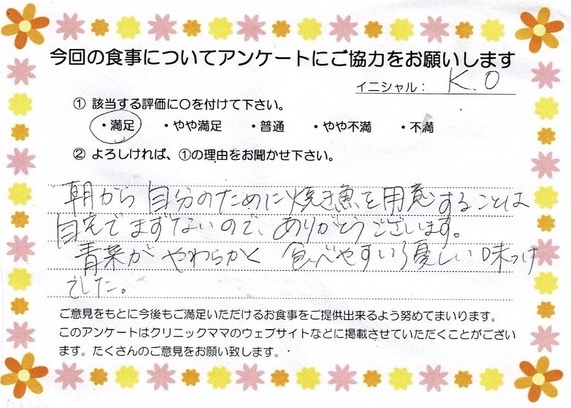 今回の食事についてアンケートにご協力をお願いします
イニシャル： K.O
① 該当する評価に〇を付けて下さい。
・満足 ・やや満足 ・普通 ・やや不満 ・不満
② よろしければ、①の理由をお聞かせ下さい。
朝から自分のために焼き魚を用意することは
自宅でまずないので、ありがとうございます。
青菜がやわらかく 食べやすい優しい味つけ
でした。
ご意見をもとに今後もご満足いただけるお食事をご提供出来るよう努めてまいります。
このアンケートはクリニックママのウェブサイトなどに掲載させていただくことがござい
ます。たくさんのご意見をお願い致します。